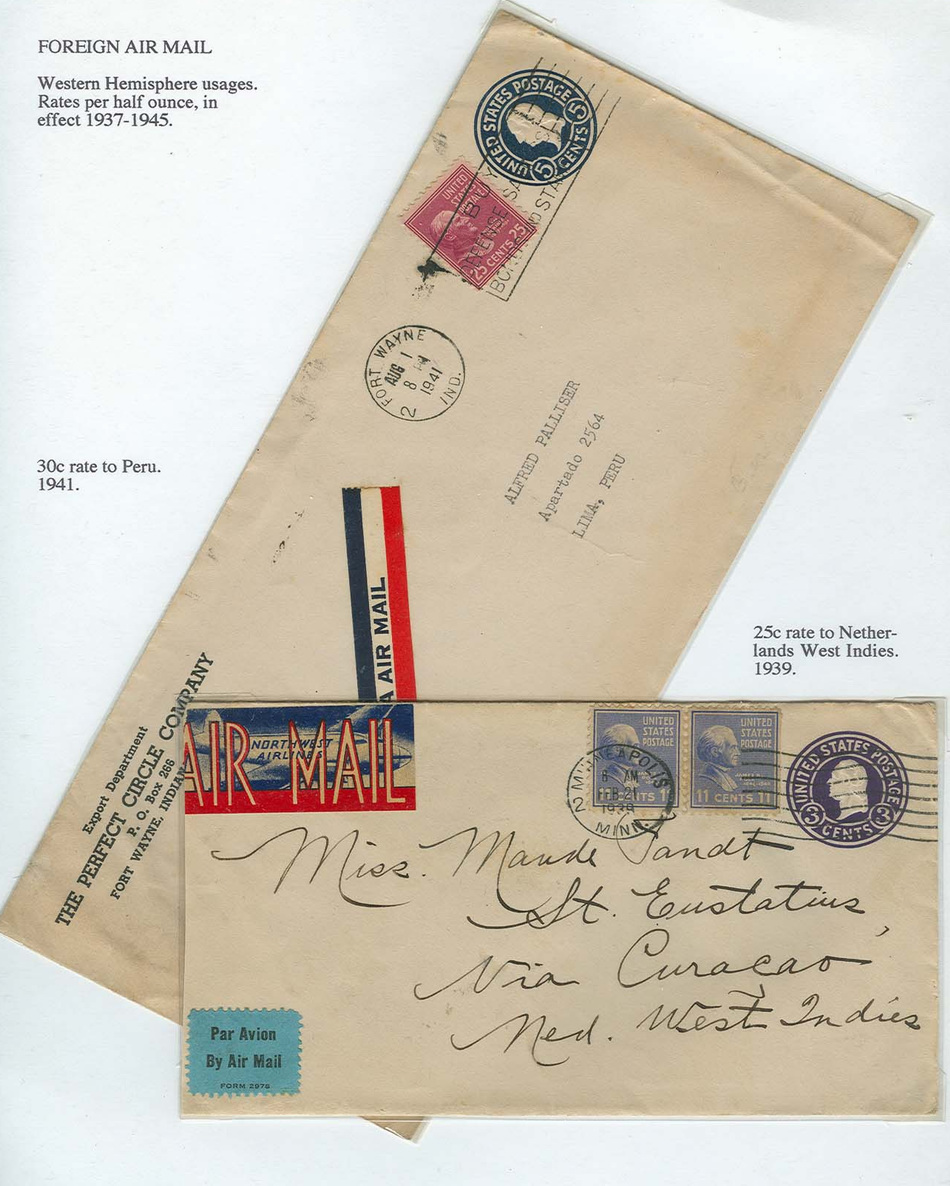 FOREIGN AIR MAIL
Western Hemisphere usages.
Rates per half ounce, in
effect 1937-1945.
UNITED STATES POSTAGE
5 CENTS 5
UNITED
STATES
25 CENTS 25
BUY
DEFENSE
BONDS AND STAMPS
FORT WAYNE
AUG 1
8 PM
1941
2 IND.
ALFRED PALLISER
Apartado 2564
LIMA, PERU
30c rate to Peru.
1941.
A AIR MAIL
25c rate to Nether-
lands West Indies.
1939.
Export Department
THE PERFECT CIRCLE COMPANY
P. O. Box 266
FORT WAYNE, INDIAN
AIR MAIL
NORTHWEST
AIRLINES
UNITED
STATES
POSTAGE
11 CENTS 11
UNITED
STATES
POSTAGE
11 CENTS 11
MINNEAPOLIS
6 AM
FEB 21
1939
2 MINN.
UNITED STATES POSTAGE
3 CENTS 3
Miss. Maude Zandt
St. Eustatius,
Via Curaçao
Ned. West Indies
Par Avion
By Air Mail
FORM 2978